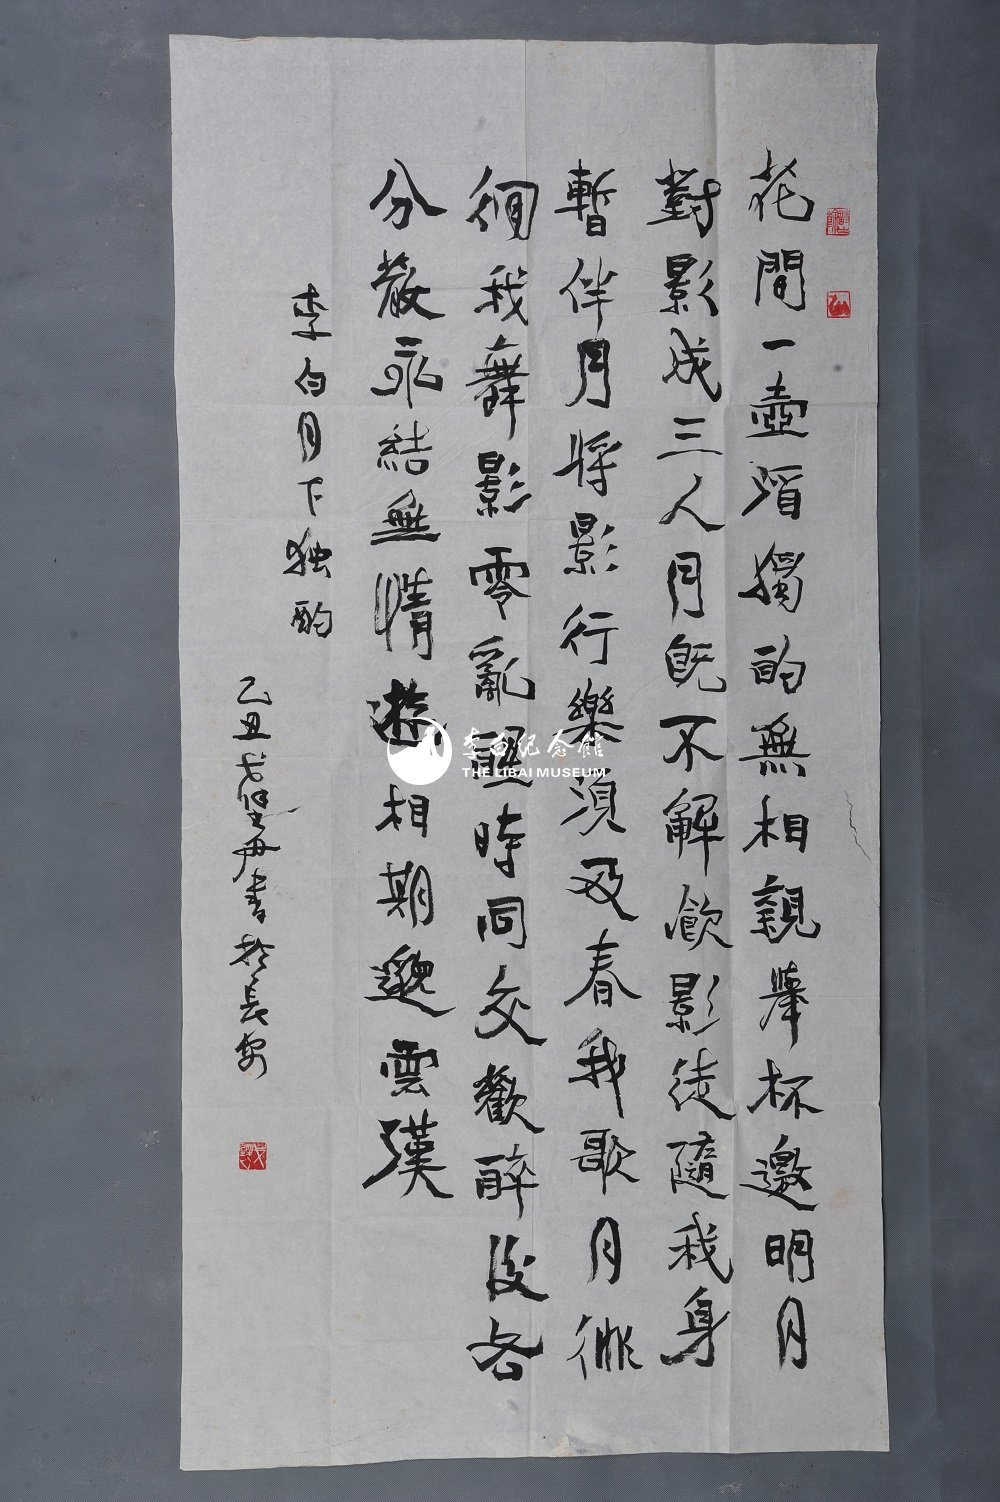 花間一壺酒獨酌無相親舉杯邀明月
對影成三人月既不解飲影徒隨我身
暫伴月將影行樂須及春我歌月徘
徊我舞影零亂醒時同交歡醉後各
分散永結無情遊相期邈雲漢
李白月下独酌
乙丑戈壁舟書於長安
李白纪念館
THE LIBAI MUSEUM